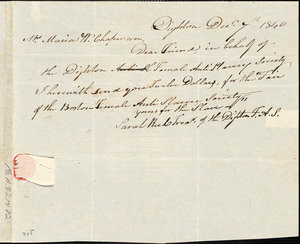 Dighton Dec 7th 1840
Mrs Maria W. Chapman
Dear Friend, in behalf of
the Dighton Female Anti Slavery Society
I herewith send you Twelve Dollars, for the Fair
of the Boston Female Anti Slavery Society
yours for the Slave
Sarah Treas. of the Dighton F. A. S.